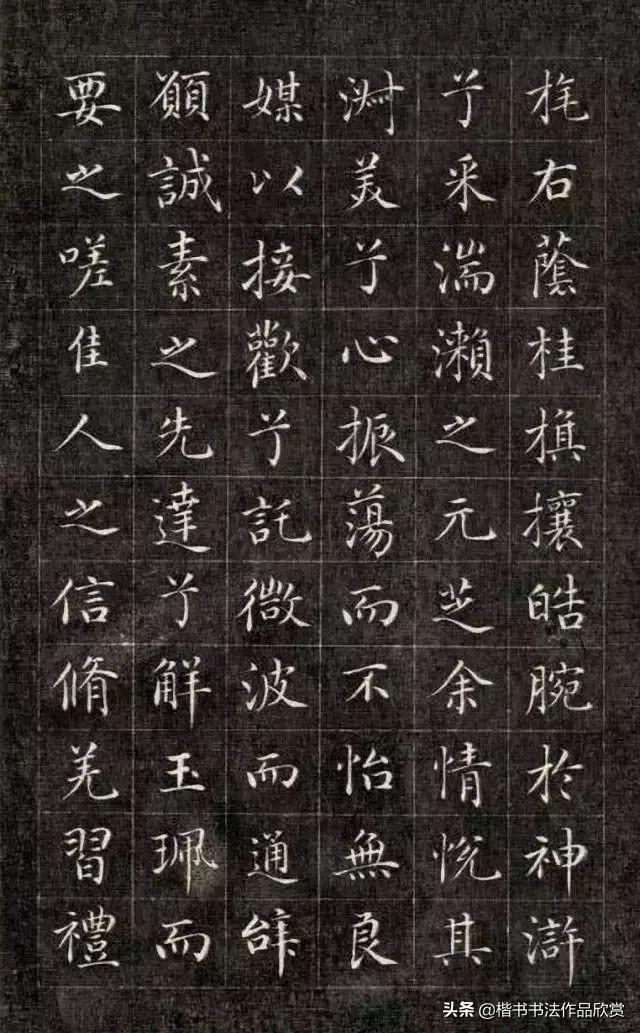 旄右蔭桂旗攘皓腕於神滸
兮采湍瀨之元芝余情悅其
淑美兮心振蕩而不怡無良
媒以接歡兮託微波而通辞
願誠素之先達兮解玉珮而
要之嗟佳人之信脩羌習禮
头条 @楷书书法作品欣赏